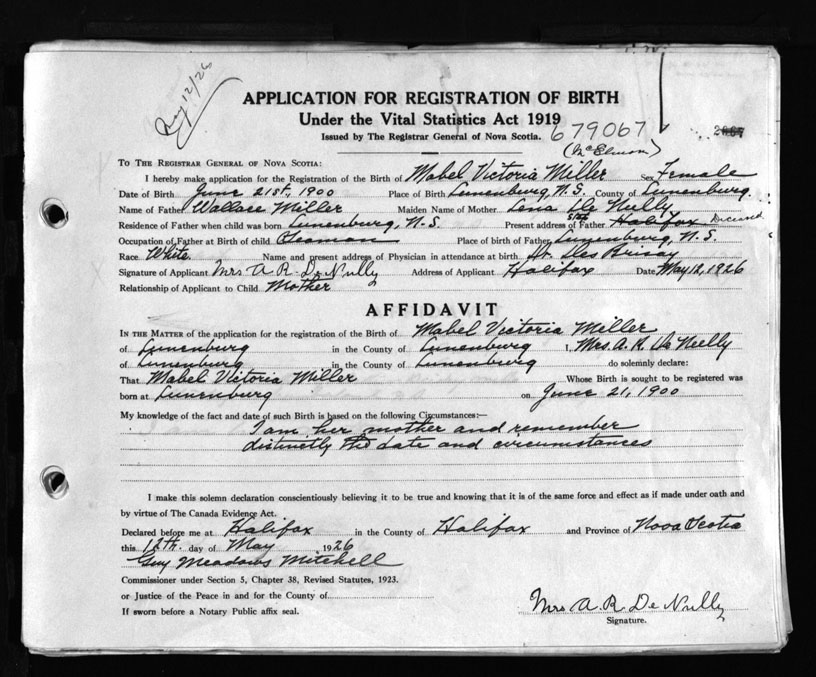 May 12/26
APPLICATION FOR REGISTRATION OF BIRTH
Under the Vital Statistics Act 1919
Issued by The Registrar General of Nova Scotia.
679067
TO THE REGISTRAR GENERAL OF NOVA SCOTIA:
I hereby make application for the Registration of the Birth of Mabel Victoria Miller Sex Female
Date of Birth June 21st, 1900 Place of Birth Lunenburg, N.S. County of Lunenburg.
Name of Father Wallace Miller Maiden Name of Mother Lena De Nully
Residence of Father when child was born Lunenburg, N.S. Present address of Father Halifax Deceased
Occupation of Father at Birth of child Seaman Place of birth of Father Lunenburg, N.S.
Race White Name and present address of Physician in attendance at birth Dr. Des Brisay
Signature of Applicant Mrs A R De Nully Address of Applicant Halifax Date May 12, 1926
Relationship of Applicant to Child Mother
AFFIDAVIT
IN THE MATTER of the application for the registration of the Birth of Mabel Victoria Miller
of Lunenburg in the County of Lunenburg I, Mrs. A. R. De Nully
of Lunenburg in the County of Lunenburg do solemnly declare:
That Mabel Victoria Miller Whose Birth is sought to be registered was
born at Lunenburg on June 21, 1900
My knowledge of the fact and date of such Birth is based on the following Circumstances:—
I am her mother and remember
distinctly the date and circumstances
I make this solemn declaration conscientiously believing it to be true and knowing that it is of the same force and effect as if made under oath and
by virtue of The Canada Evidence Act.
Declared before me at Halifax in the County of Halifax and Province of Nova Scotia
this 12th. day of May 1926
Guy Meadows Mitchell
Commissioner under Section 5, Chapter 38, Revised Statutes, 1923.
or Justice of the Peace in and for the County of
If sworn before a Notary Public affix seal.
Mrs A. R. De Nully
Signature.